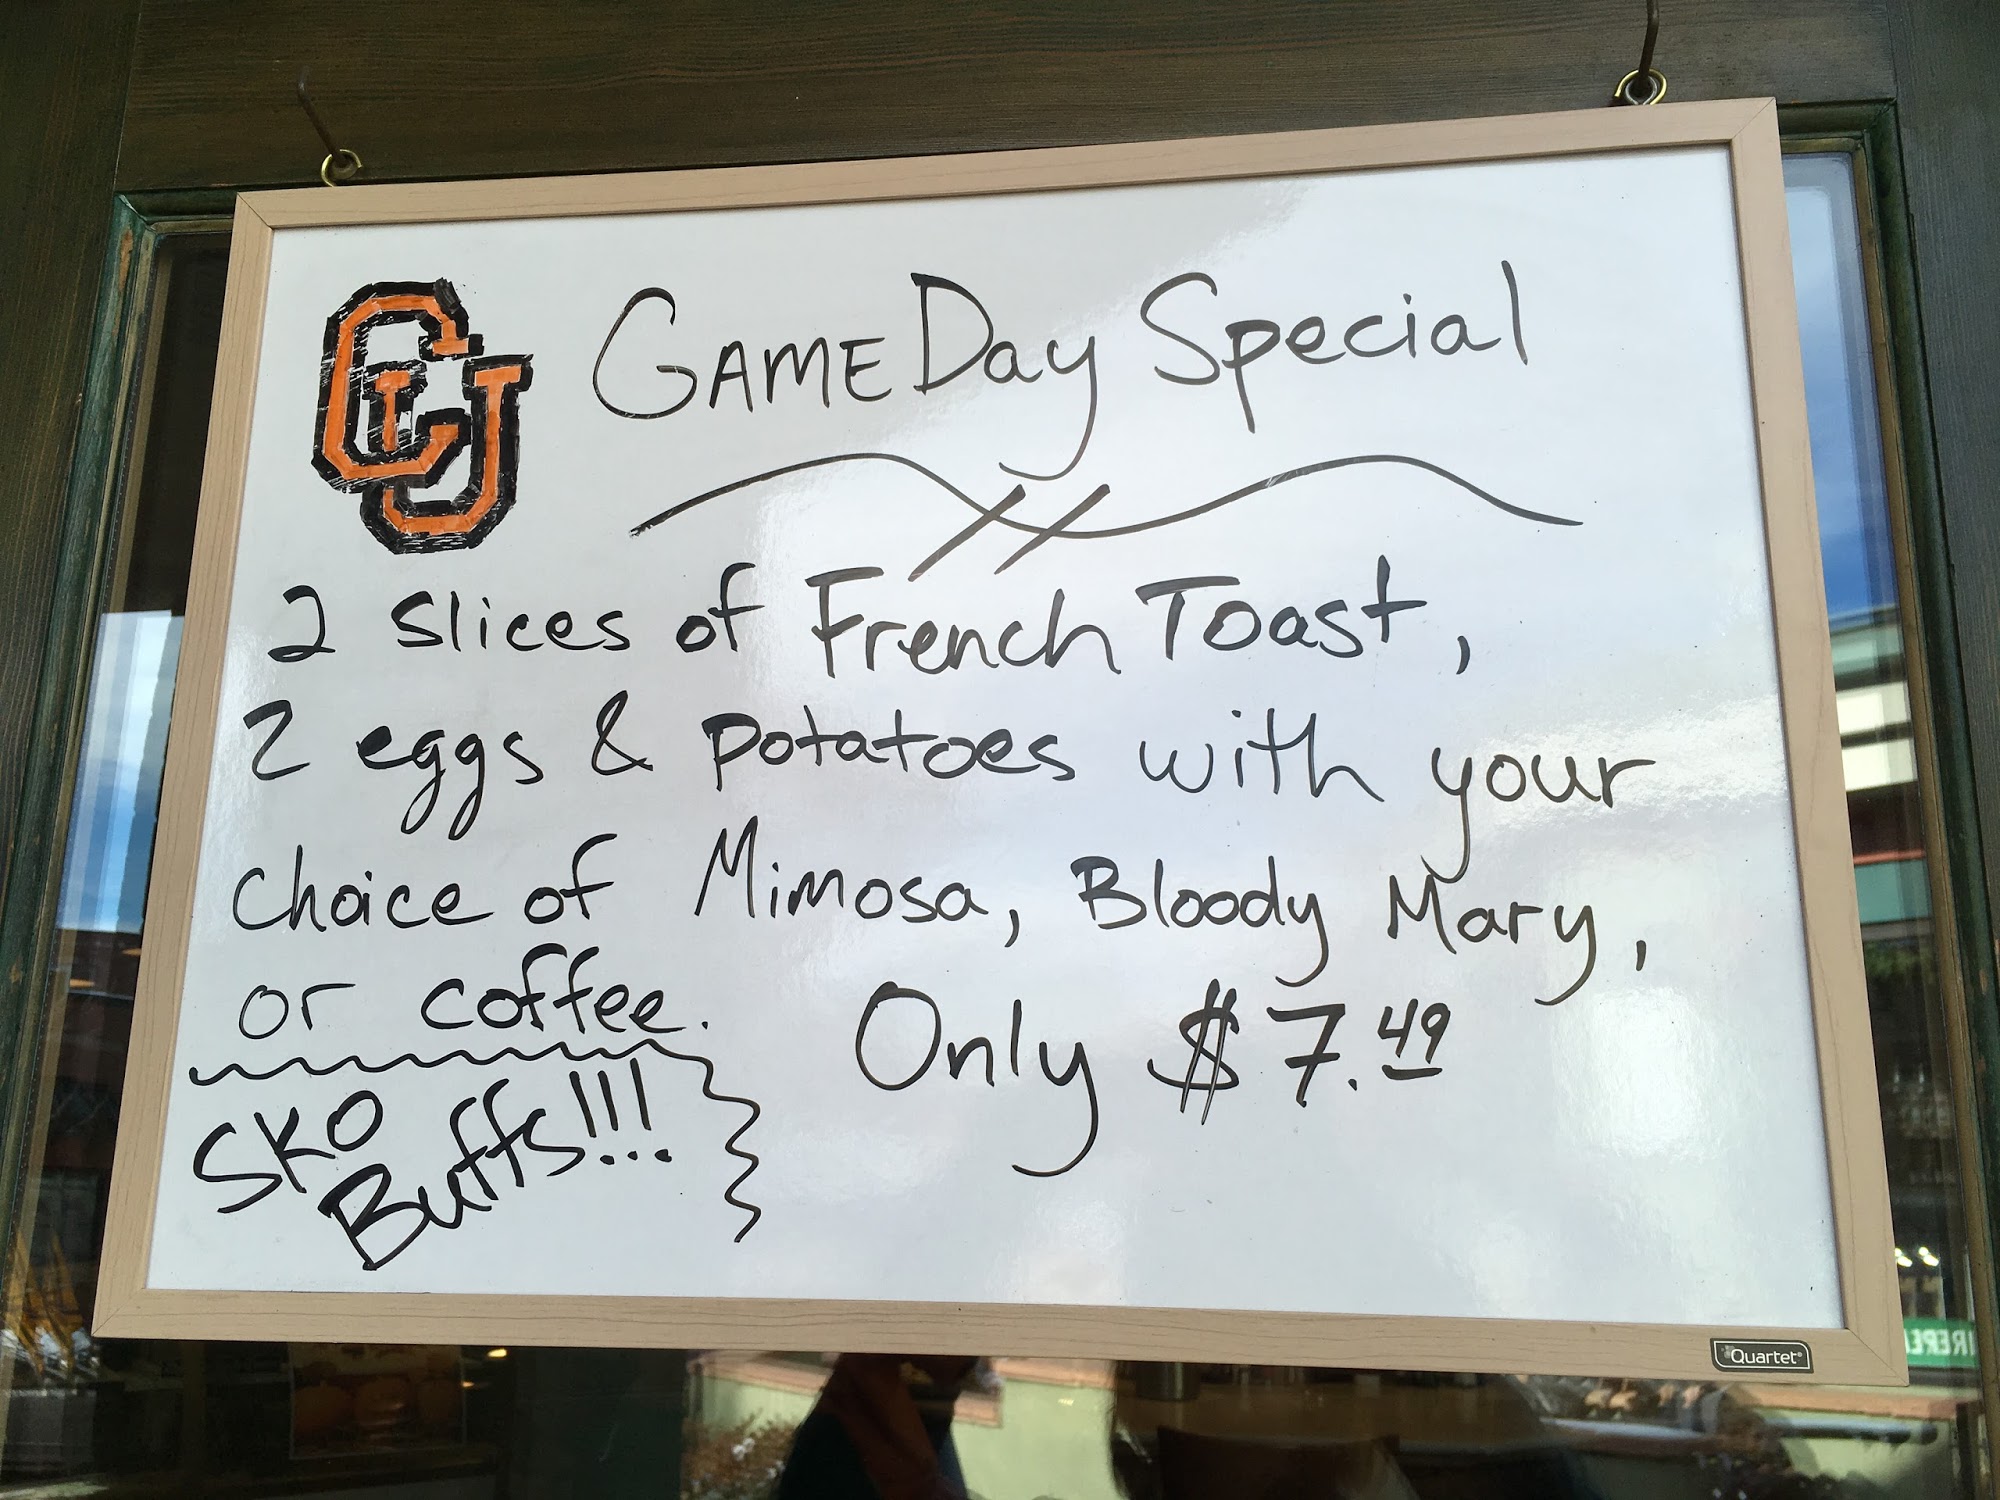 CU
GAME Day Special
2 slices of French Toast,
2 eggs & potatoes with your
choice of Mimosa, Bloody Mary,
or coffee.
Only $7.49
SKO
Buffs!!!
Quartet